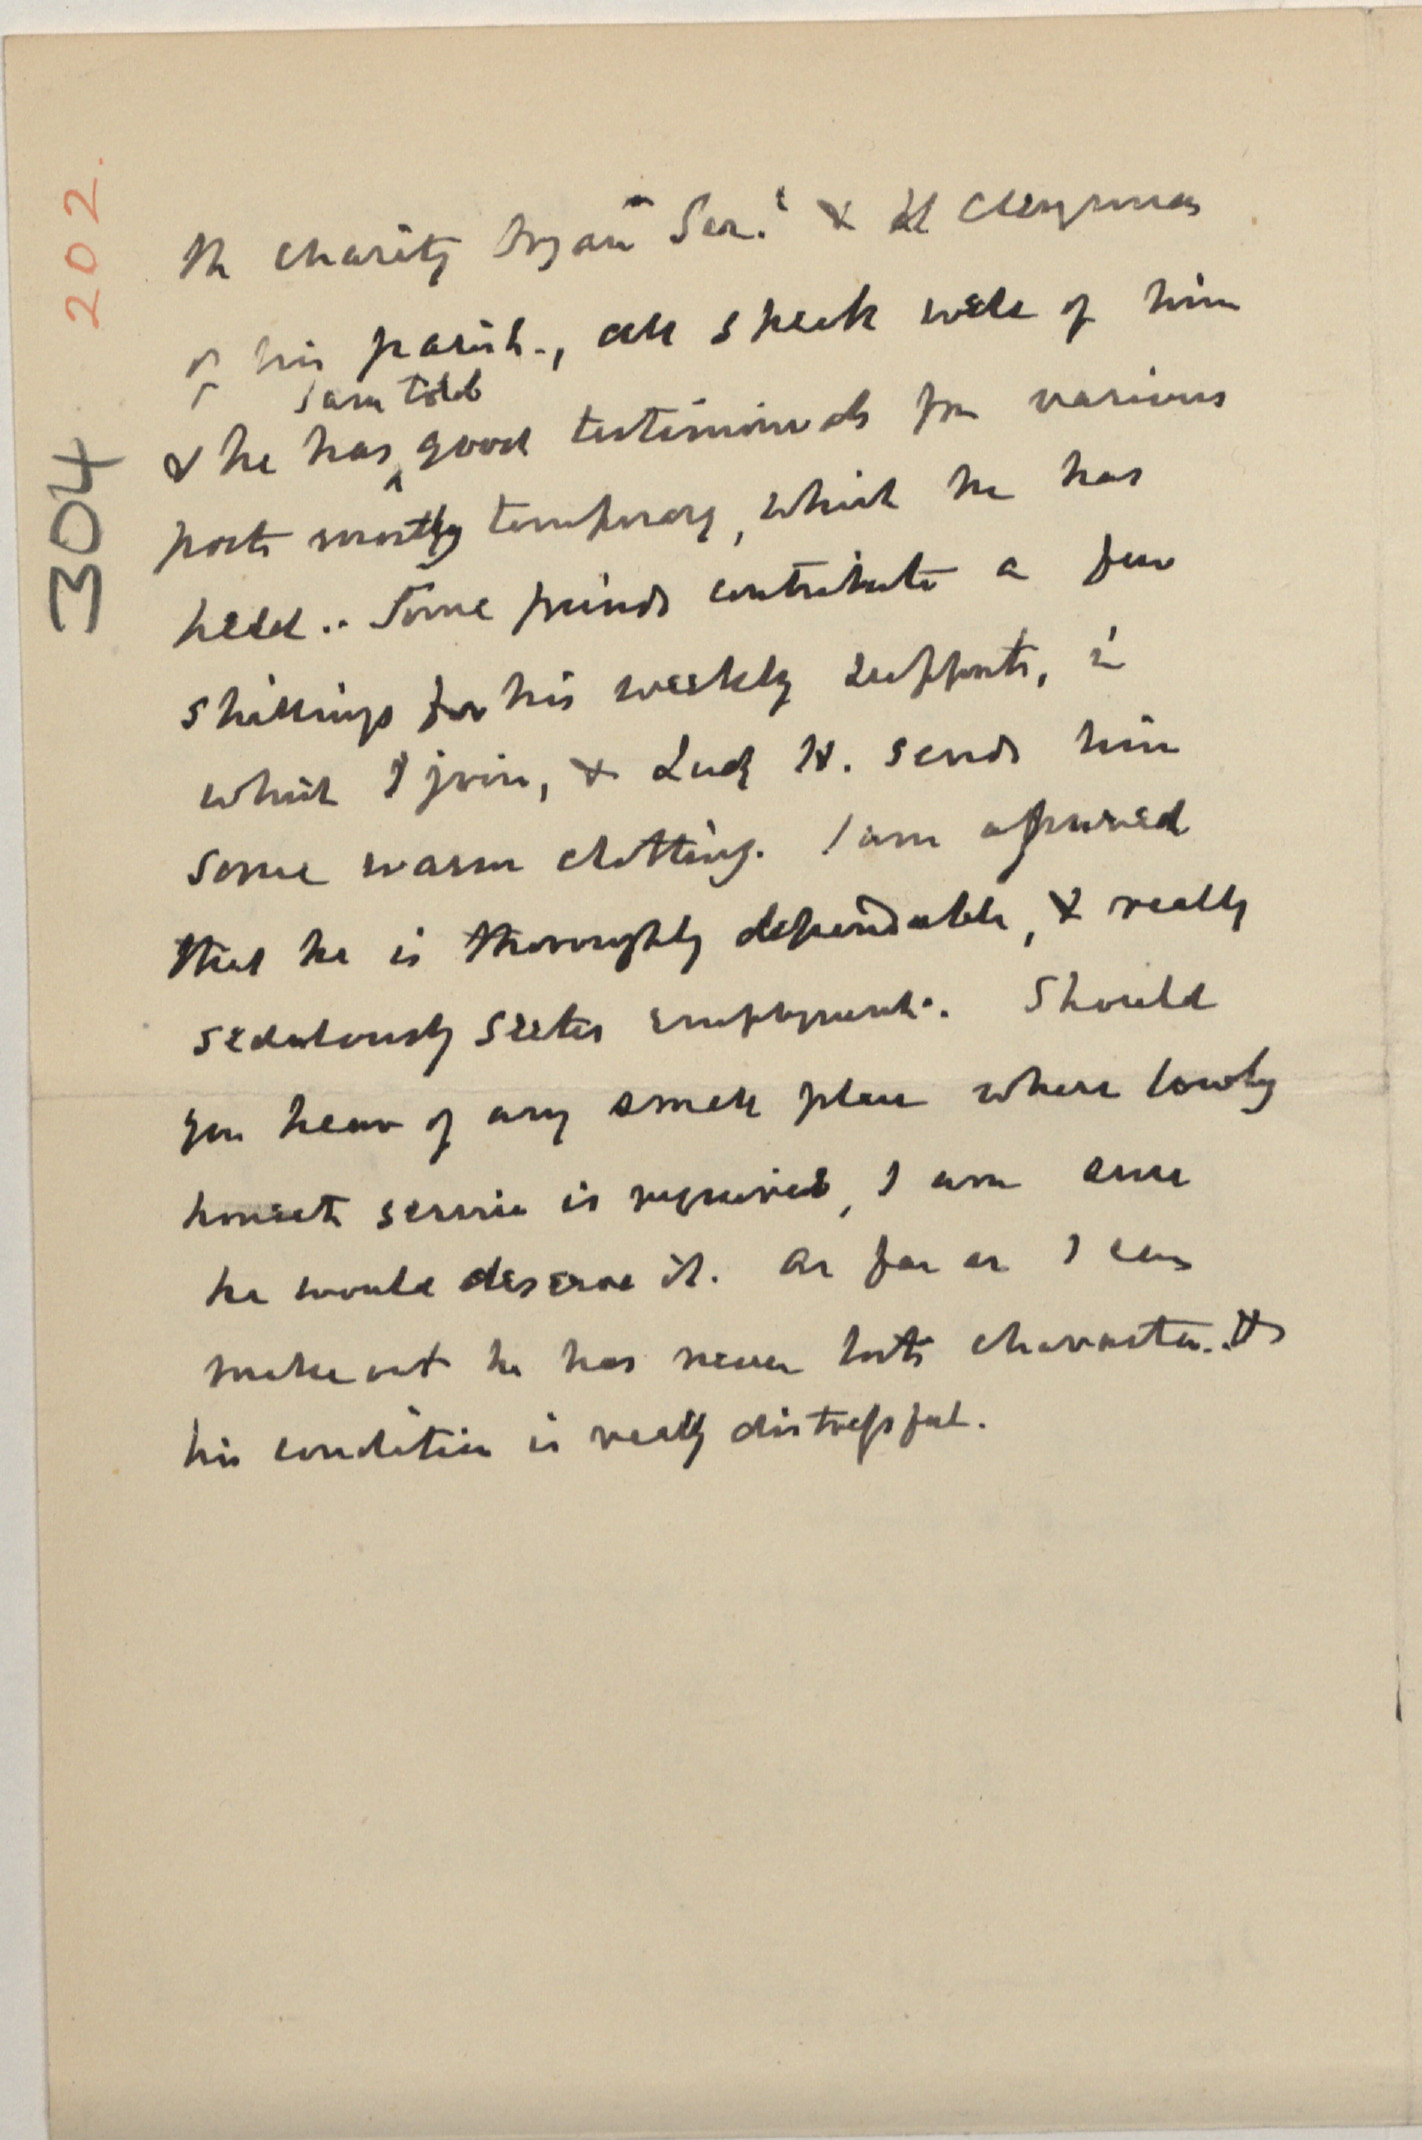 202.
304
The charity Organn Secy. & the Clergyman
of his parish., all speak well of him
I am told
& he has good testimonials from various
posts mostly temporary, which he has
held.. Some friends contribute a few
shillings for his weekly support, in
which I join, & Lady H. sends him
some warm clothing. I am assured
that he is thoroughly dependable, & really
sedulously seeks employment. Should
you hear of any small place where lowly
honest service is required, I am sure
he would deserve it. As far as I can
make out he has never lost character. &
his condition is really distressful.